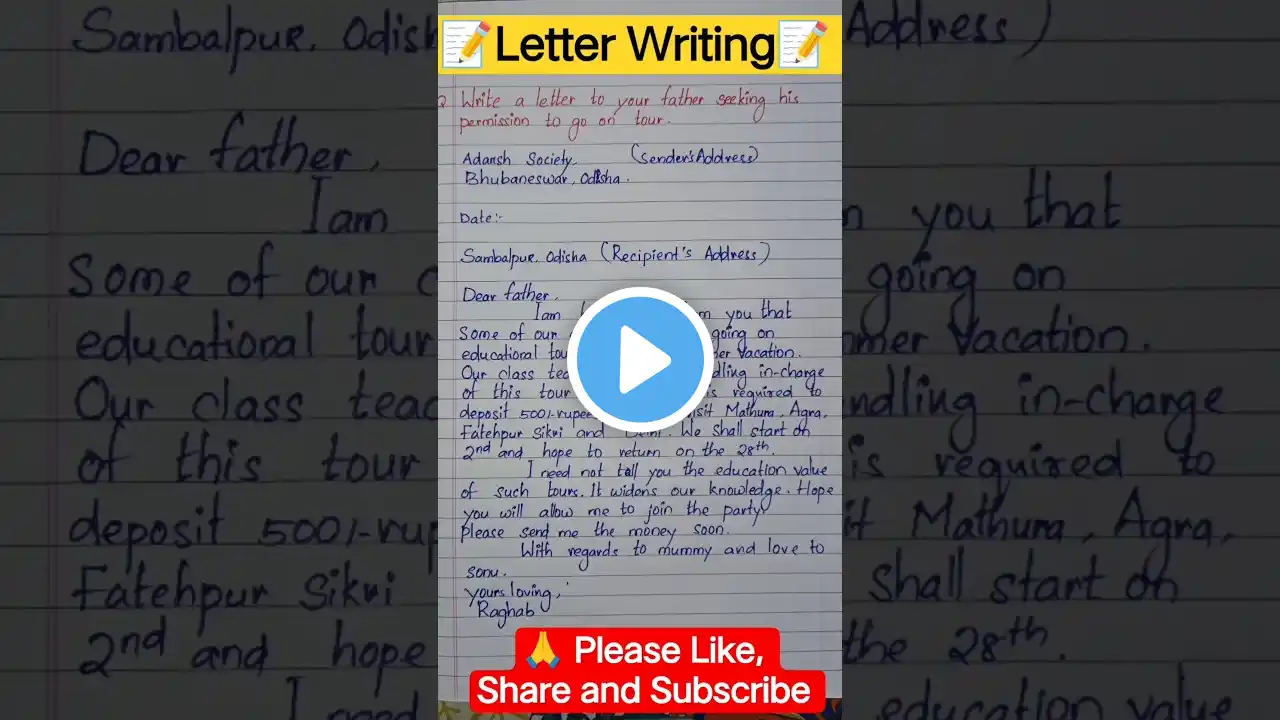 📝Letter Writing📝
Q Write a letter to your father seeking his
permission to go on tour.
Adarsh Society, (Sender's Address)
Bhubaneswar, Odisha.
Date:-
Sambalpur. Odisha (Recipient's Address)
Dear father,
I am you that
Some of our going on
educational vacation.
Our class in-charge
of this tour is required to
deposit 500/- Mathura, Agra,
Fatehpur Sikri and We shall start on
2nd and hope to return on the 28th.
I need not tell you the education value
of such tours. It widens our knowledge. Hope
you will allow me to join the party
please send me the money soon.
With regards to mummy and love to
sonu.
yours loving,
Raghab
🙏 Please Like,
Share and Subscribe